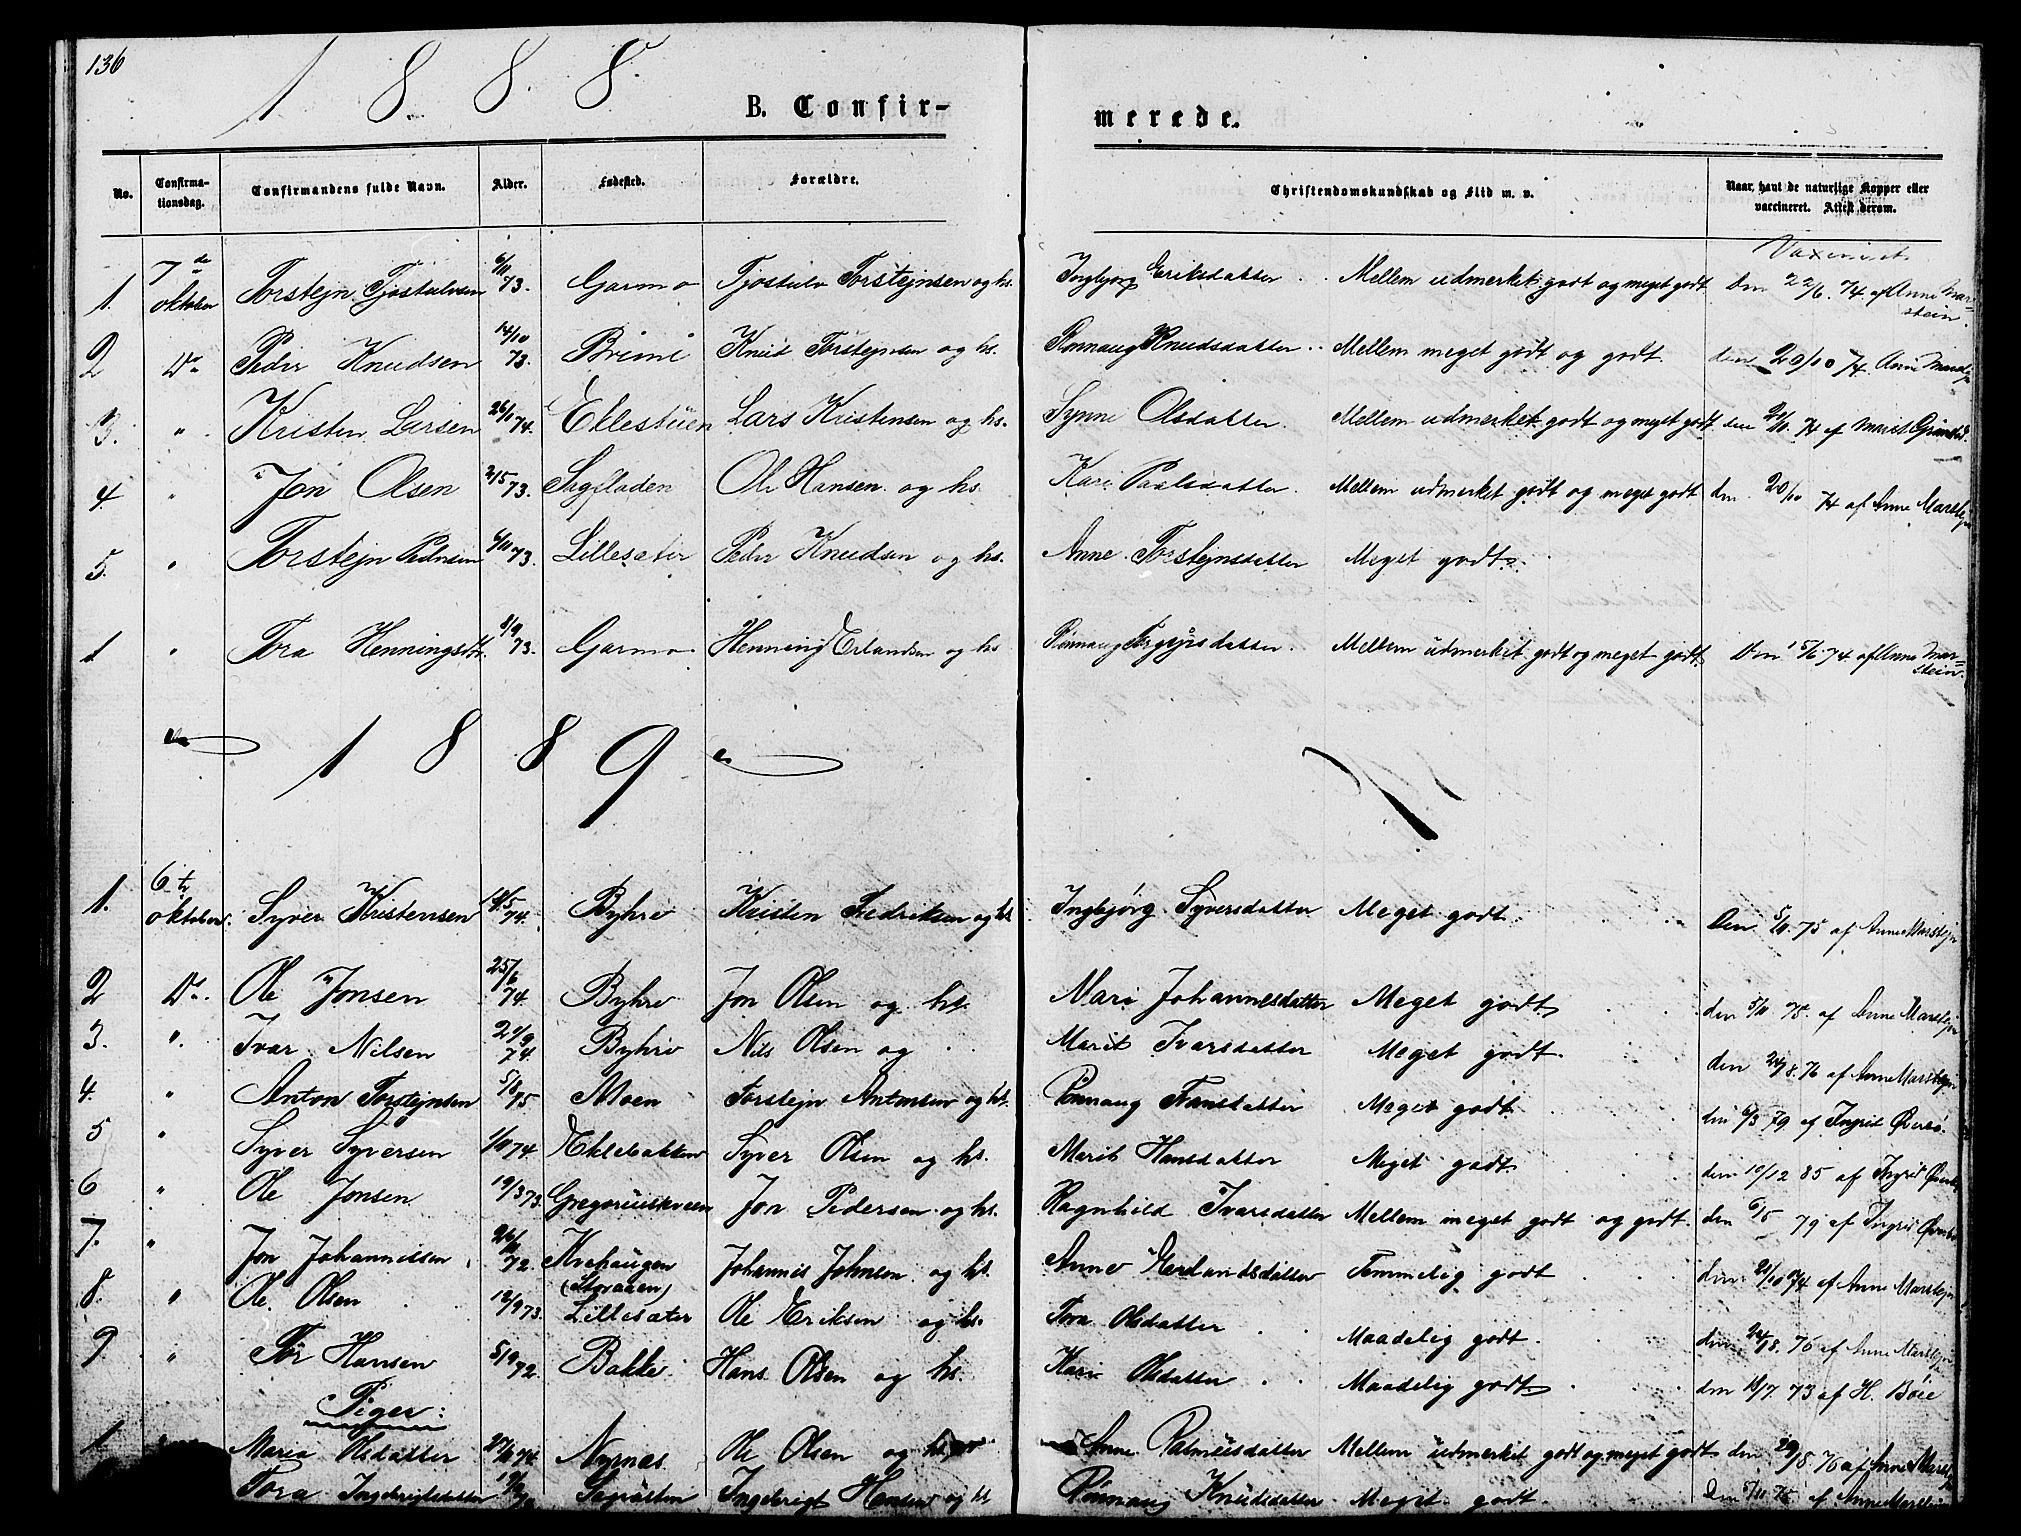 136
1888
B. Confir-
merede.
No. Confirma-tionsdag. Confirmandens fulde Navn. Alder. Fødested. Forældre. Christendomskundskab og Flid m. v. Naar, havt de naturlige Kopper eller vaccineret. Attest derom.
1. 7de oktober Torstejn Tjostulvsen 6/11 73. Garmo Tjostulv Torstejnsen og hs. Ingbjorg Eriksdatter Mellem udmerket godt og meget godt Den 22/6. 74 af Anne Mar=stein.
2 Do Peder Knudsen 14/10 73. Brimi Knut Torstejnsen og hs. Rønnaug Knudsdatter Mellem meget godt og godt den 20/10 74. Anne
3. " Kristen Larsen 26/1 74. Eklestuen Lars Kristensen og hs. Synne Olsdatter Mellem udmerket godt og meget godt den 74 af Marit
4. " Jon Olsen 2/5 73. Sagfladen Ole Hansen og hs. Kari Paalsdatter. Mellem udmerket godt og meget godt den 20/10 74 af Anne Marstejn
5. " Torstejn Pedersen 6/11 73. Lillesæter Peder Knudsen og hs. Anne Torstejnsdatter Meget godt.
1 " Tora Henningsdt. 8/9 73. Garmo Henning Erlandsen og hs Rønnaug Mellem udmerket godt og meget godt Den 15/6 74. af Anne Mar=stein.
1889
1. 6te oktober. Syver Kristensen 18/5 74. Byhre Kristen Fredriksen og hs Ingbjørg Syversdatter Meget godt Den 5/11 75 af Anne Marstejn
2 Do. Ole Jonsen 25/6 74 Byhre Jon Olsen og hs. Mari Johannesdatter Meget godt den 5/11 75. af Anne Marstejn
3. ". Ivar Nilsen 74. Byhre Nils Olsen og Marit Ivarsdatter Meget godt. den 24/8. 76 af Anne Marstejn
4. " Anton Torstejnsen 5/8 75 Moen Torstejn Antonsen og hs. Rønnaug Meget godt den 6/3 79 af Ingrit
5 " Syver Syversen 1/11 74. Eklebakken Syver Olsen og hs. Marit Hansdatter Meget godt den 10/12 85 af Ingrit
6 " Ole Jonsen 19/3 73. Gregoriuskveen Jon Pedersen og hs. Ragnhild Ivarsdatter Mellem meget godt og godt. den 6/5 79 af Ingrit
7. " Jon Johannessen 72. Kvehaugen Johannes Johnsen og hs. Anne Erlandsdatter Temmelig godt den 21/10 74 af Anne Marstejn
8. " Ole Olsen 12/9 73 (Storaaen) Lillesæter Ole Eriksen og hs. Tora Olsdatter Maadelig godt. den 24/8. 76 af Anne Marstejn
9. " Tor Hansen 5/9 72. Bakke Hans Olsen og hs. Kari Olsdatter Maadelig godt den 19/7. 73 af H. Bøie
Piger:
1 Maria Olsdatter 74. Nyrnes Ole Olsen og Anne Rasmusdatter Mellem udmerket godt og meget godt den 29/8 76 af Anne Marstejn
Tora Ingebrigtsdatter Ingebrigt Hansen og hs Rønnaug Knudsdatter Meget godt. Den 5/11 75 af Anne Marstejn